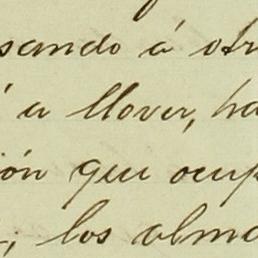 sando á otr
á a llover, ha
ión que ocup
, los alma